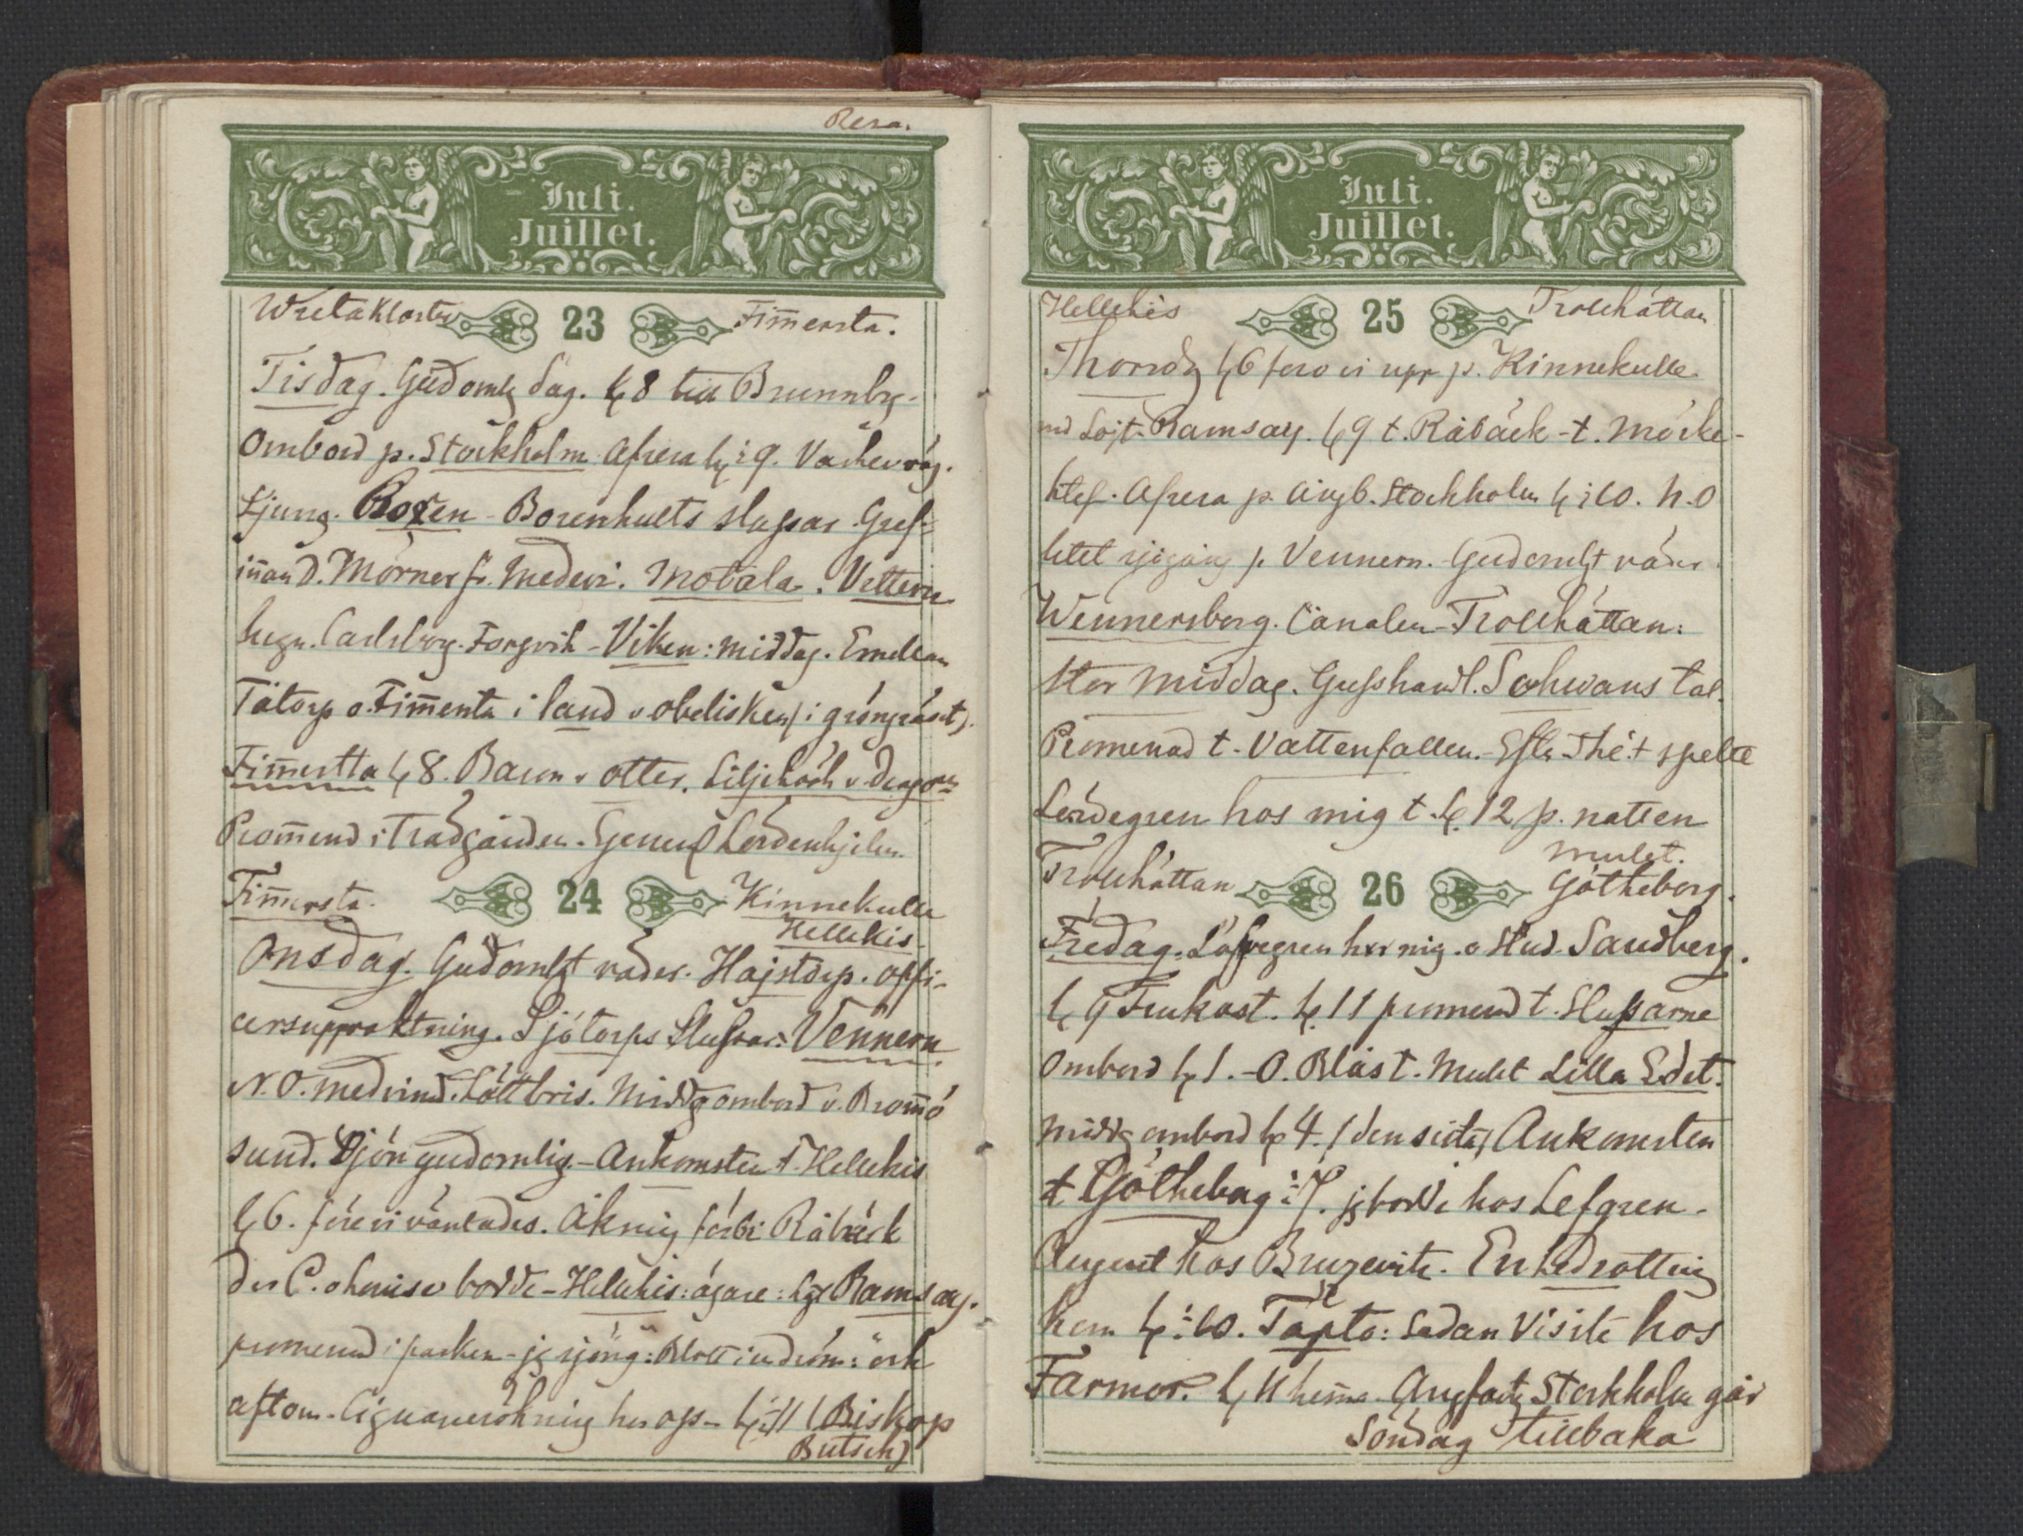 Resa.
Juli.
Juillet.
Wreta Kloster 23 Fim̄ersta.
Tisdag. Gudoml dag. kl 8 till Brunnby-
Ombord p. Stockholm Afresa kl ½ 9. Vackerväg.
Ljung. Boren - Borenhults slussar. Gref-
in̄an D. Mörner fr. Medevi. Motala. Vettern
lugn. Carlsborg. Forsvik - Viken: middag. Emellan
Tåtorp o. Fim̄ersta i land v obelisken (i gröngräset).
Fim̄ersta kl 8. Baron v Otter. Liljehöök v Dragon
Prom̄enad i Trädgården. General Lördenhjelm.
Fim̄ersta. 24 Kinnekulle
Hellekis
Onsdag. Gudomlgt väder. Hajstorp. offi-
cersuppvaktning. Sjötorps Slussar. Vennern.
N.O. medvind. Lätt bris. Middg ombord v. Brom̄ö
sund. Sjön gudomlig - Ankomsten t. Hellekis
kl 6. före vi väntades. Åkning förbi Råbäck
der C. o Louise bodde - Hellekis: ägare: Ramsay.
promenad i parken - jg sjöng: i en dröm: och
aftom. Cigarrrökning hos oss - kl ½ 11 (Biskop
Butsch)
Juli.
Juillet.
Hellekis 25 Trollhättan
Thorsdg kl 6 foro vi upp p. Kinnekulle
md Löjt. Ramsay. kl 9 t. Råbäck - t. Mörke-
klef. Afresa p. ångb. Stockholm kl ½ 10. N.O
litet sjögång p. Vennern. Gudomlgt väder
Wennersborg. Canalen - Trollhättan:
stor middag. Grosshandl. Schwans tal.
Promenad t. Vattenfallen. - Eftr Thé:t spelte
hos mig t. kl. 12 p. natten
mulet.
Trollhättan 26 Götheborg.
Fredag. Löfvegren hos mig. o Stud. Sandberg.
kl 9 Frukost. kl. 11 promenad t. Slussarne
Ombord kl 1. - O. Blåst. Mulet Lilla Edet.
Middg ombord kl 4. (den sista) Ankomsten
t Götheborg ½ 7. jg bodde hos Lefgren -
August hos Bruzewitz. En hel
hem kl ½ 10. Tapto: Sedan Visite hos
Farmor. kl 11 hem̄a. Angfartg Stockholm går
Söndag tillbaka